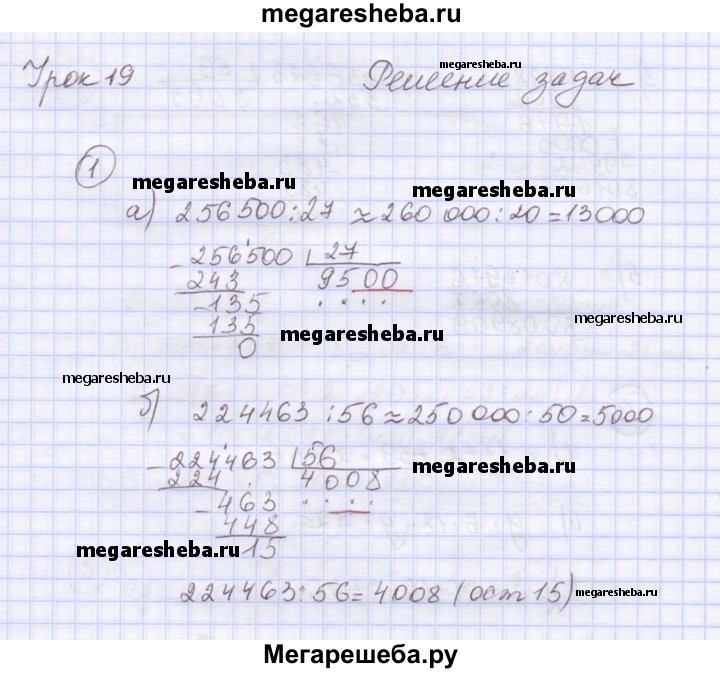 megaresheba.ru
Урок 19 Решение задач
megaresheba.ru
1
megaresheba.ru
а) 256500:27 ≈ 260 000:20=13000
- 256500 | 27
243 9500
-135 . . . .
135
0
megaresheba.ru
megaresheba.ru
megaresheba.ru
б) 224463 :56 ≈ 250 000:50=5000
- 224463 | 56
224 . 4008
megaresheba.ru
- 463 . . . .
448
15
megaresheba.ru
224463:56=4008 (ост 15)
megaresheba.ru
Мегарешеба.ру